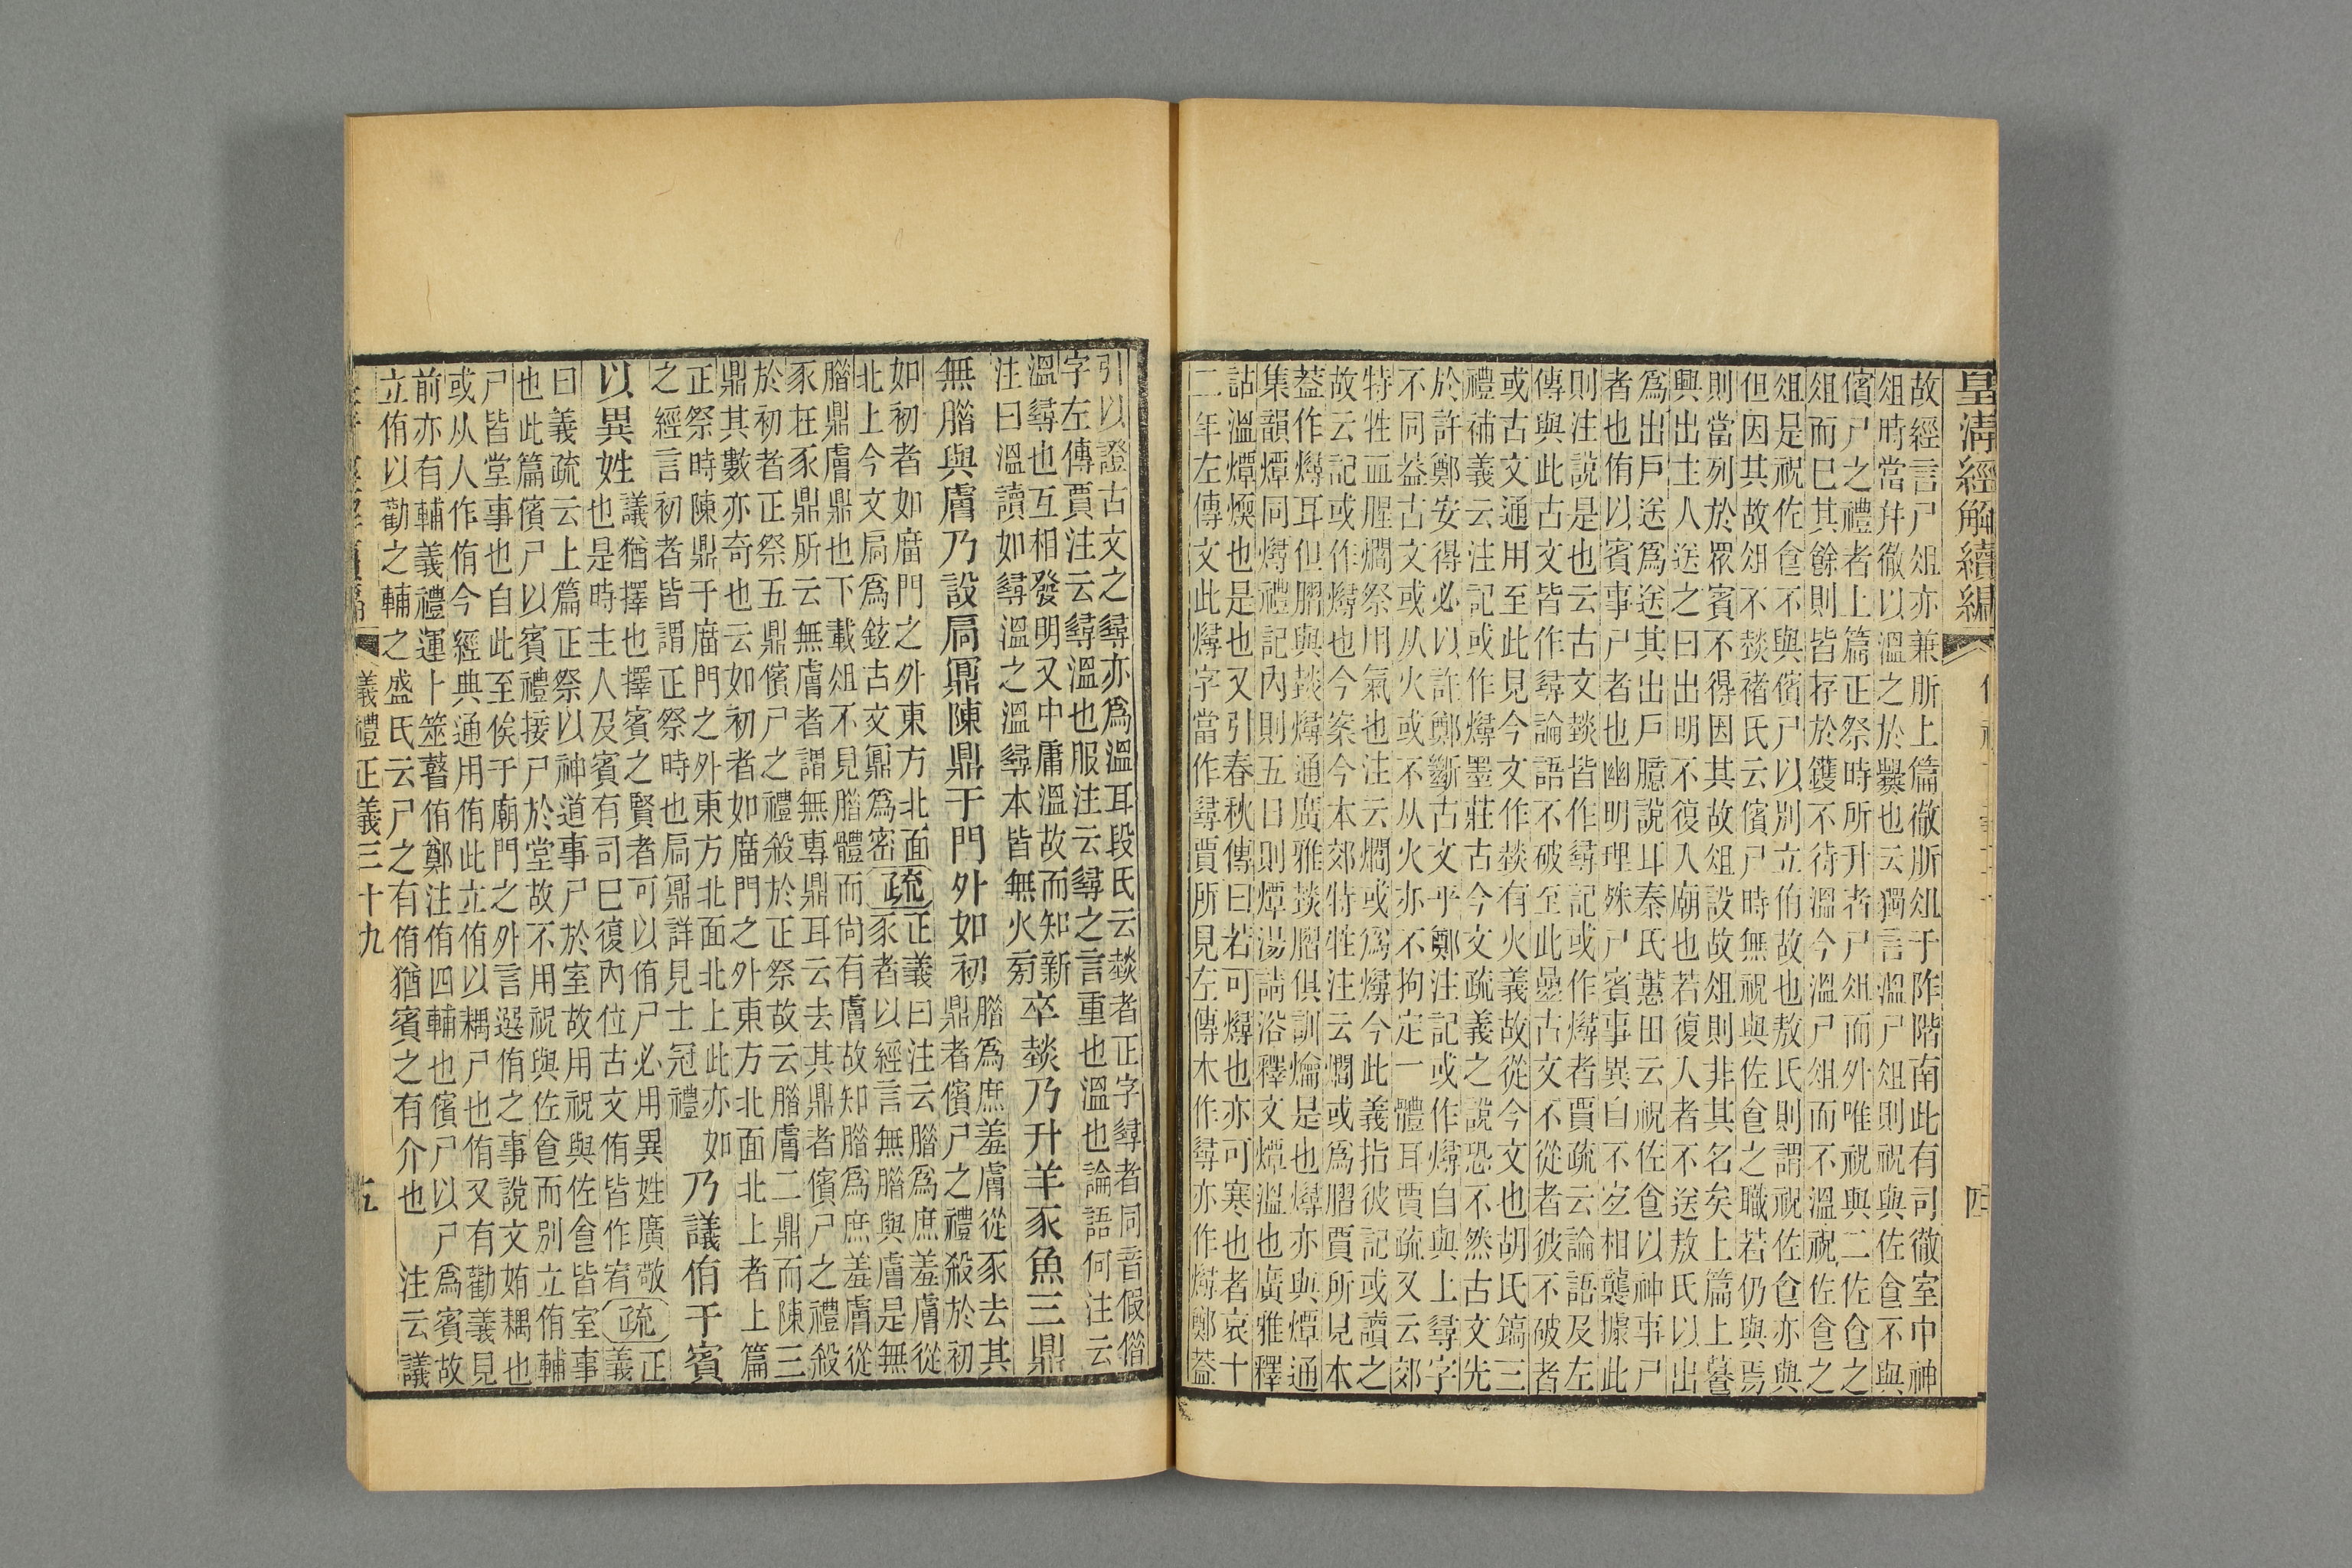 皇清經解續編
故經言尸俎亦兼肵上篇徹肵俎于阼階南此有司徹室中神
俎時當幷徹以溫之於爨也云獨言溫尸俎則祝與佐食不與
儐尸之禮者上篇正祭時所升者尸俎而外唯祝與二佐食之
俎而已其餘則皆存於鑊不待溫今溫尸俎而不溫祝佐食之
俎是祝佐食不與儐尸以別立伯故也敖氏則謂祝佐食亦與
但因其故俎不燅褚氏云儐尸時無祝與佐食之職若仍與焉
則當列於眾賓不得因其故俎設故俎則非其名矣上篇上養
興出主人送之曰出明不復入廟也若復人者不送敖氏以出
爲出戶送爲送其出戶臆說耳秦氏蕙田云祝佐食以神事尸
者也侑以賓事尸者也幽明理殊尸賓事異自不宐相襲據此
則注說是也云古文燅皆作尋記或作燖者賈疏云論語及左
傳與此古文皆作尋論語不破至此曡古文不從者彼不破者
或古文通用至此見今文作燅有火義故從今文也胡氏鎬三
禮補義云注記或作燖墨莊古今文疏義之說恐不然古文先
於許鄭安得必以許鄭斷古文乎鄭注記或作燖自與上尋字
不同益古文或从火或不从火亦不拘定一體耳賈疏又云郊
特牲血腥爓祭用氣也注云爓或爲燖今此義指彼記或讀之
故云記或作燖也今案今本郊特牲注云爓或爲膶賈所見本
葢作燖耳但膶與燅燖通廣雅燅膶俱訓爚是也燖亦與燂通
集韻燂同燖禮記內則五日則燂湯請浴釋文燂溫也廣雅釋
詁溫燂煗也是也又引春秋傳曰若可燖也亦可寒也者哀十
二年左傳文此燖字當作尋賈所見左傳木作尋亦作燖鄭葢
四
引以證古文之尋亦爲溫耳段氏云燅者正字尋者同音假借
字左傳賈注云尋溫也服注云尋之言重也溫也論語何注云
溫尋也互相發明又中庸溫故而知新
注曰溫讀如尋溫之溫尋本皆無火旁
卒燅乃升羊豕魚三鼎
無腊與膚乃設扃鼏陳鼎于門外如初
腊爲庶羞膚從豕去其
鼎者儐尸之禮殺於初
如初者如廟門之外東方北面
北上今文扃爲鉉古文鼏爲密
疏
正義曰注云腊爲庶羞膚從
豕者以經言無腊與膚是無
腊鼎膚鼎也下載俎不見腊體而尙有膚故知腊爲庶羞膚從
豕在豕鼎所云無膚者謂無專鼎耳云去其鼎者儐尸之禮殺
於初者正祭五鼎儐尸之禮殺於正祭故云腊膚二鼎而陳三
鼎其數亦奇也云如初者如廟門之外東方北面北上者上篇
正祭時陳鼎于廟門之外東方北面北上此亦如
之經言初者皆謂正祭時也扃鼏詳見士冠禮
乃議侑于賓
以異姓
議猶擇也擇賓之賢者可以侑尸必用異姓廣敬
也是時主人及賓有司已復內位古文侑皆作宥
疏
正義
曰義疏云上篇正祭以神道事尸於室故用祝與佐食皆室事
也此篇儐尸以賓禮接尸於堂故不用祝與佐食而別立侑輔
尸皆堂事也自此至俟于廟門之外言選侑之事說文姷耦也
或从人作侑今經典通用侑此立侑以耦尸也侑又有勸義見
前亦有輔義禮運卜筮瞽侑鄭注侑四輔也儐尸以尸爲賓故
立侑以勸之輔之盛氏云尸之有侑猶賓之有介也 注云議
儀禮正義三十九
五